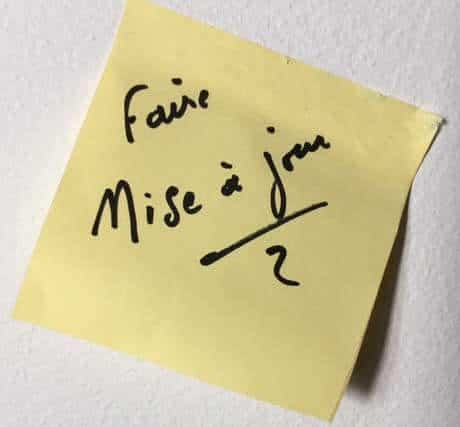 Faire
Mise à jour
2